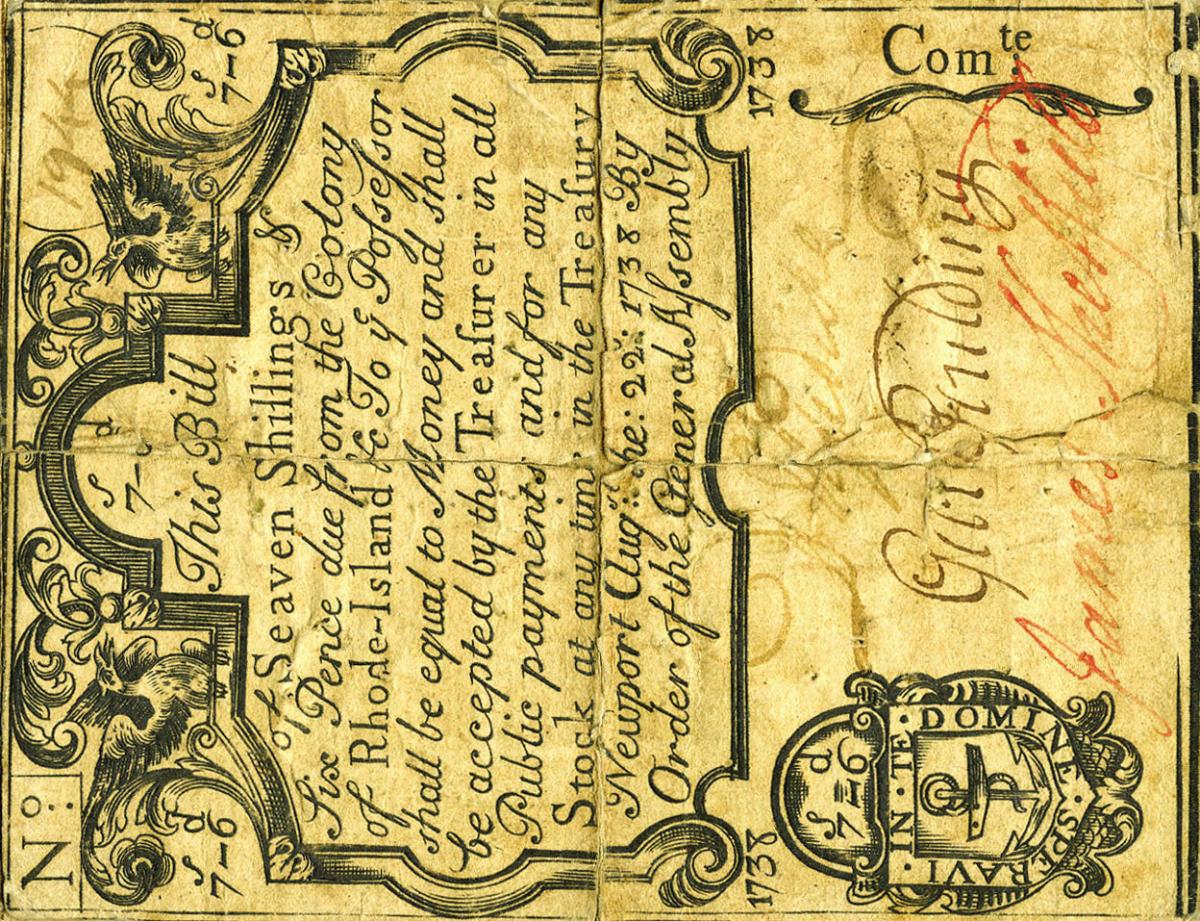 Nº: 1944
s d
7-6
s d
7-
s d
7-6
This Bill
of Seaven Shillings &
Six Pence due from the Colony
of Rhode-Island &c To yͤ Poſseſsor
shall be equal to Money and shall
be accepted by the Treaſurer in all
Public payments and for any
Stock at any time in the Treaſury
Newport Aug: the: 22: 1738 By
Order of the General Aſsembly
1738 1738
s d
7=6
IN · TE · DOMINE · SPERAVI
Comᵗᵉ:
James Sheffield